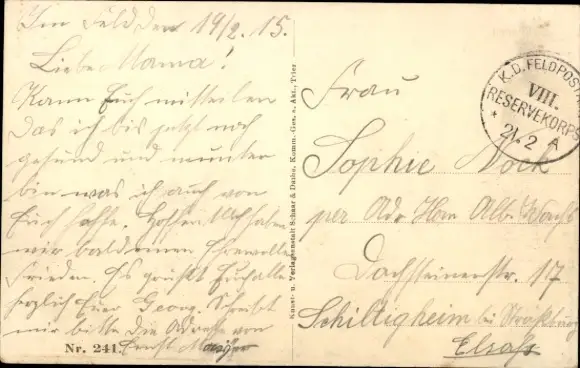 Im Feld den 19/2. 15.
Liebe Mama!
Kann Euch mitteilen
das ich bis jetzt noch
gesund und munter
bin was ich auch von
Euch hoffe. Hoffentlich haben
wir bald einen Ehrevollen
Frieden. Es grüßt Euch alle
herzlich Euer Georg. Schreibt
mir bitte die Adresse von
Ernst
Nr. 241.
Kunst- u. Verlagsanstalt Schaar & Dathe, Komm.-Ges. a. Akt., Trier
K.D. FELDPOST
VIII.
RESERVEKORPS
* 21 2 A
Frau
Sophie Nock
per Adr Herrn Alb.
Dachsteinerstr. 17
Schiltigheim bei Straßburg
Elsaß